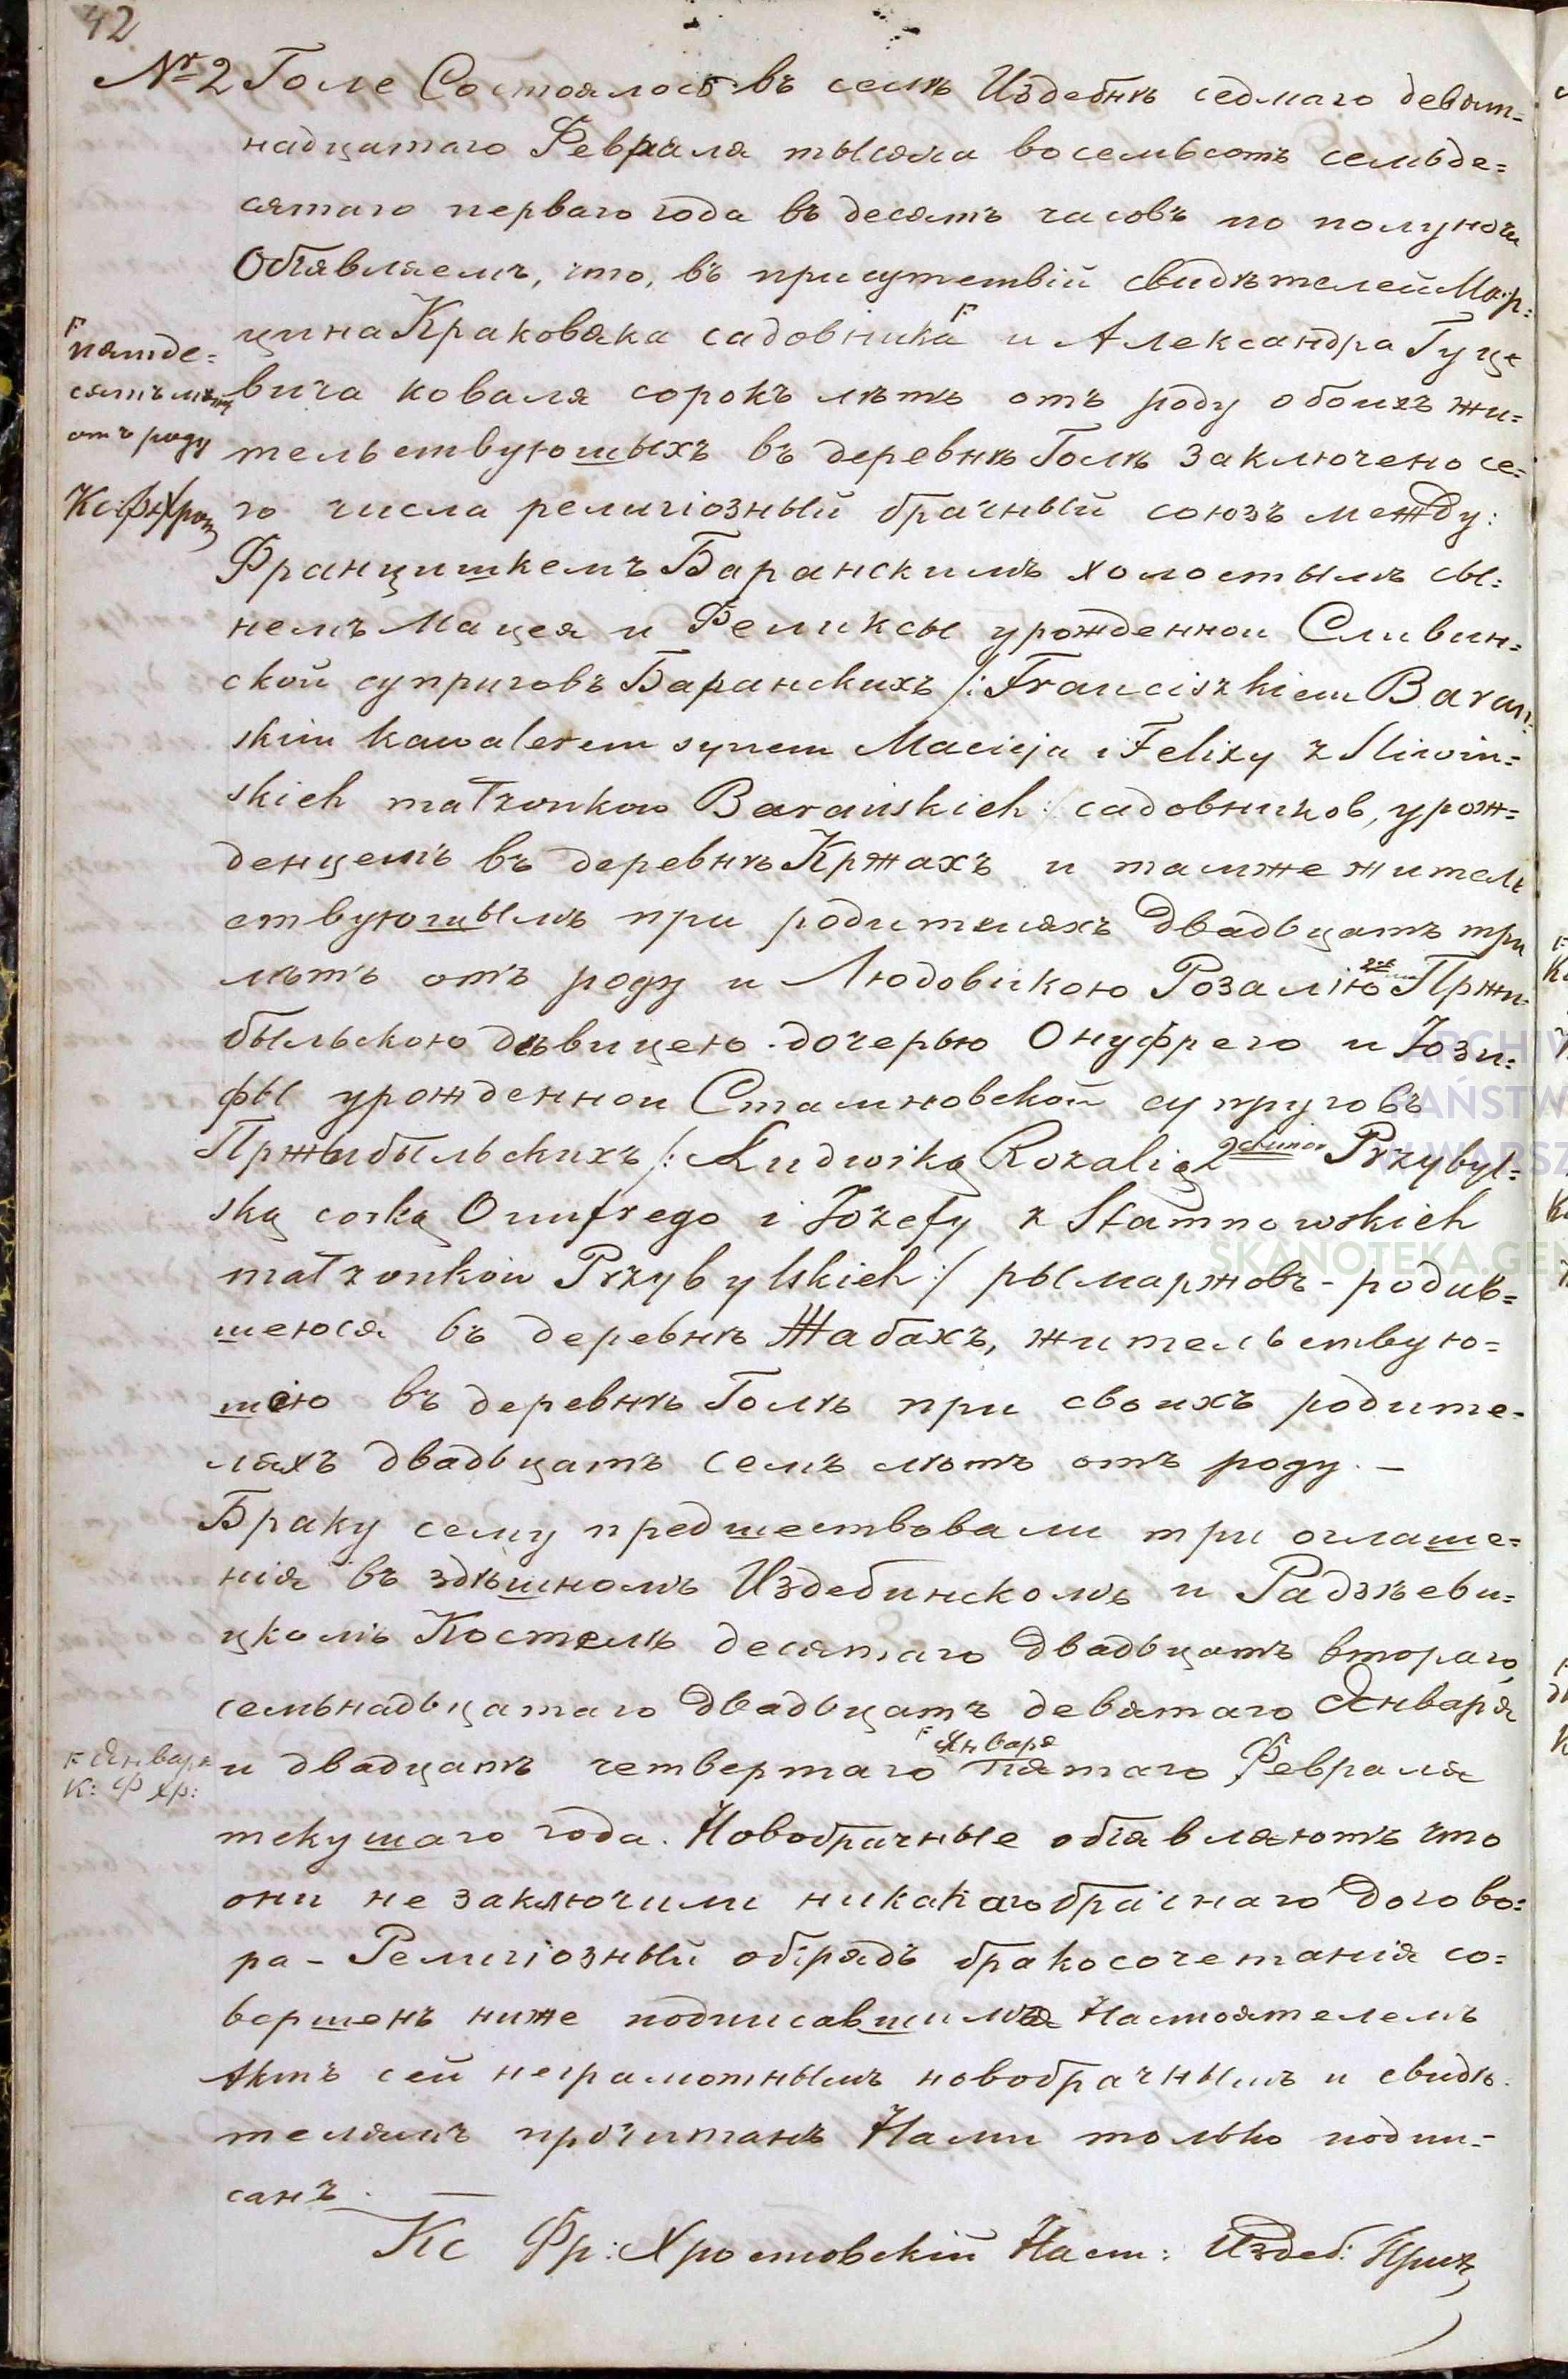 42
№ 2 Голе Состоялось въ селѣ Издебнѣ седмаго девят-
надцатаго Февраля тысяча восемьсотъ семьде=
сятаго перваго года въ десять часовъ по полуночи
Обіявляемъ, что, въ присутствіи свидѣтелей Мар=
цина Краковяка садовника F и Александра Гуце
F
пятде=
сятъ лѣтъ
отъ роду
вича коваля сорокъ лѣтъ отъ роду обоихъ жи=
тельствуюшыхъ въ деревнѣ Голѣ заключено се=
го числа религіозный брачный союзъ между:
Францишкемъ Баранскимъ холостымъ сы=
немъ Мацея и Феликсы урожденной Сливин=
ской супруговъ Баранскихъ /: Franciszkiem Barań=
skim kawalerem synem Macieja i Felixy z Sliwin=
skich małżonkow Barańskich :/ садовников, урож=
денцемъ въ деревнѣ Кржахъ и тамже житель
ствуюшымъ при родителяхъ двадьцать три
лѣтъ отъ роду и Людовикою Розалію 2хъ Пржи=
быльскою дѣвицею дочерью Онуфрего и Юзи=
фы урожденной Стамновской супруговъ
Пржыбыльскихъ /: Ludwiką Rozalią 2 imion Przybyl=
ską corką Onufrego i Józefy z Stamnowskich
małżonków Przybylskich :/ рымаржовъ - родив=
шеюся въ деревнѣ Жабахъ, жительствую=
шею въ деревнѣ Голѣ при своихъ родите-
ляхъ двадьцать семъ лѣтъ отъ роду. —
Браку сему предшествовали три оглаше=
нія въ здѣшномъ Издебинскомъ и Радзѣеви=
цкомъ Костелѣ десятаго двадьцать втораго,
семьнадьцатаго двадьцать девятаго Января
F Января
К: Ф Хр:
и двадцать четвертаго F Января пятаго Февраля
текушаго года. Новобрачные обіявляютъ что
они не заключили никакого брачнаго догово=
ра - Религіозный обірядъ бракосочетанія со=
вершенъ ниже подписавшимся Настоятелемъ
Актъ сей неграмотнымъ новобрачнымъ и свидѣ-
телямъ прочитанъ Нами только подпи-
санъ. —
Кс Фр: Хростовскій Наст: Издеб:
ARCHIW
PAŃSTW
W WARSZ
SKANOTEKA.GEN